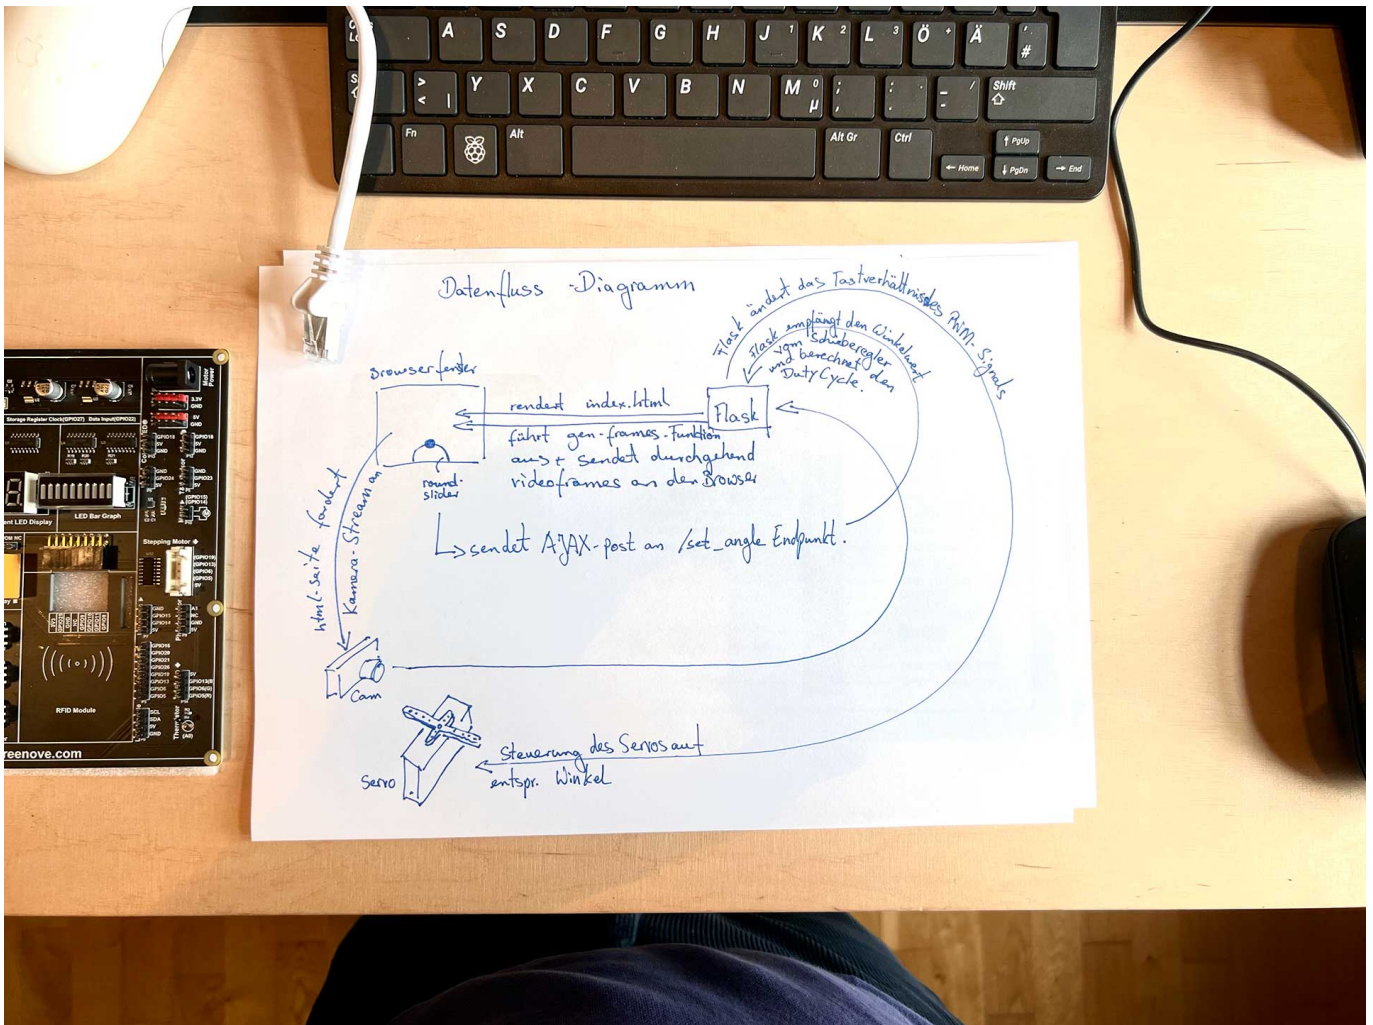 A S D F G H J 1 K 2 L 3 Ö + Ä ' #
> < | Y X C V B N M 0 µ ; , : . _ - / Shift
Fn Alt Alt Gr Ctrl ↑ PgUp
← Home ↓ PgDn → End
Datenfluss-Diagramm
Flask ändert das Tastverhältnis des PWM-Signals
Flask empfängt den Winkelwert
vom Schieberegler
und berechnet den
DutyCycle.
Browserfenster
rendert index.html
Flask
führt gen-frames-Funktion
aus + sendet durchgehend
videoframes an den Browser
round-
slider
sendet AJAX-post an /set_angle Endpunkt.
html-seite fordert
Kamera-Stream an
Cam
Servo
Steuerung des Servos auf
entspr. Winkel
Motor
Power
3.3V
GND
5V
GND
Storage Register Clock(GPIO27) Data Input(GPIO22)
GPIO18
5V
GND
GND
GPIO23
5V
LED Bar Graph
ent LED Display
Stepping Motor
RFID Module
SCL
SDA
5V
GND
reenove.com